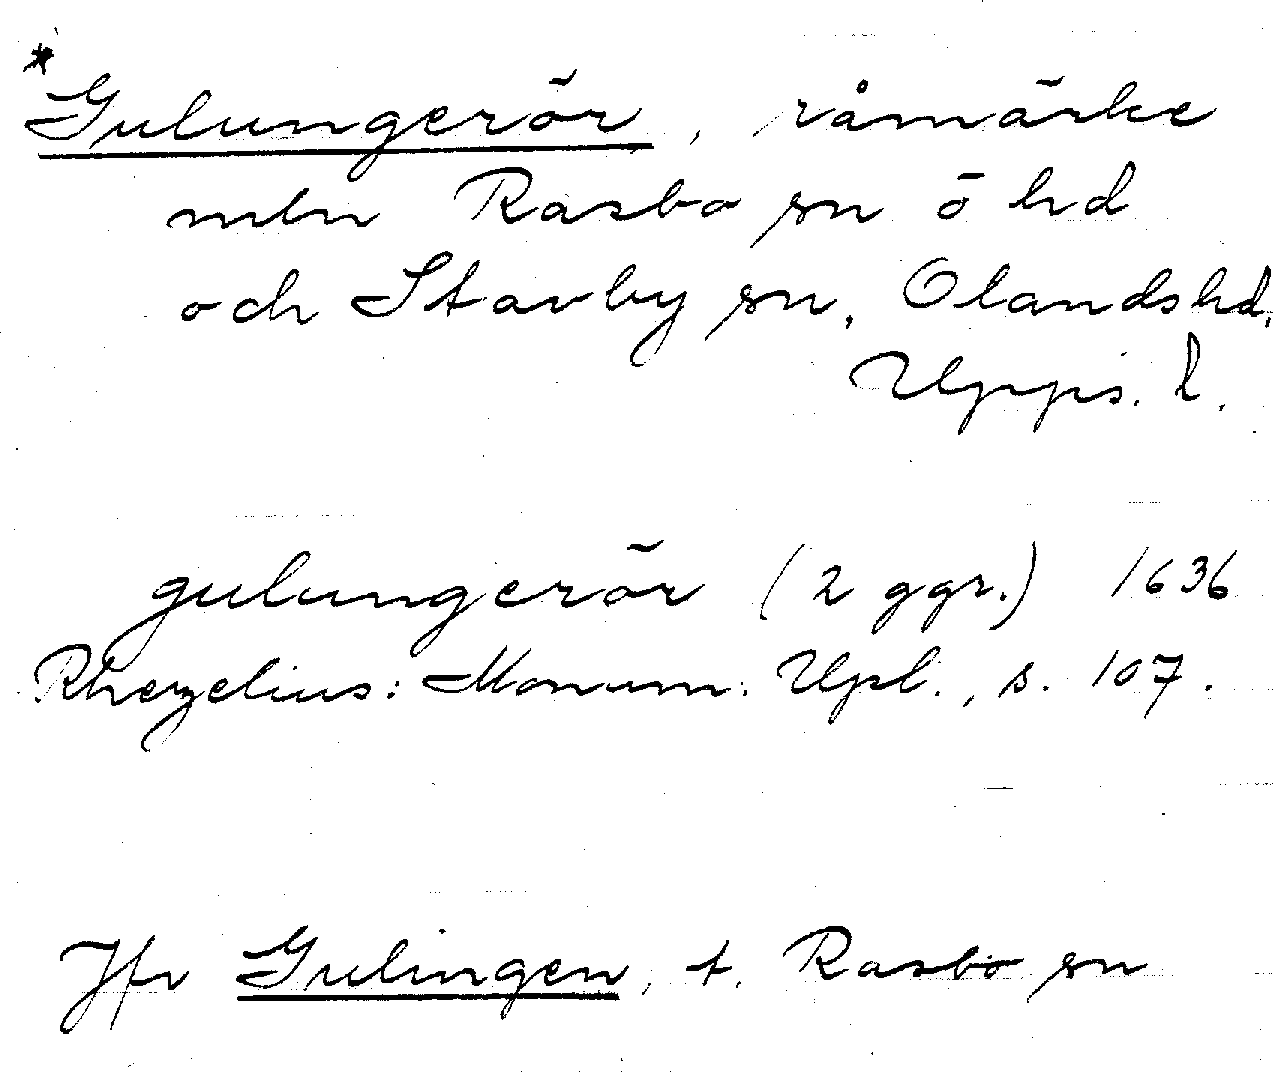 *Gulungerör, råmärke
mln Rasbo sn o hd
och Stavby sn, Olandshd,
Upps. l.
gulungerör (2 ggr.) 1636
Rhezelius: Monum. Upl., s. 107.
Jfr Gulingen, t. Rasbo sn